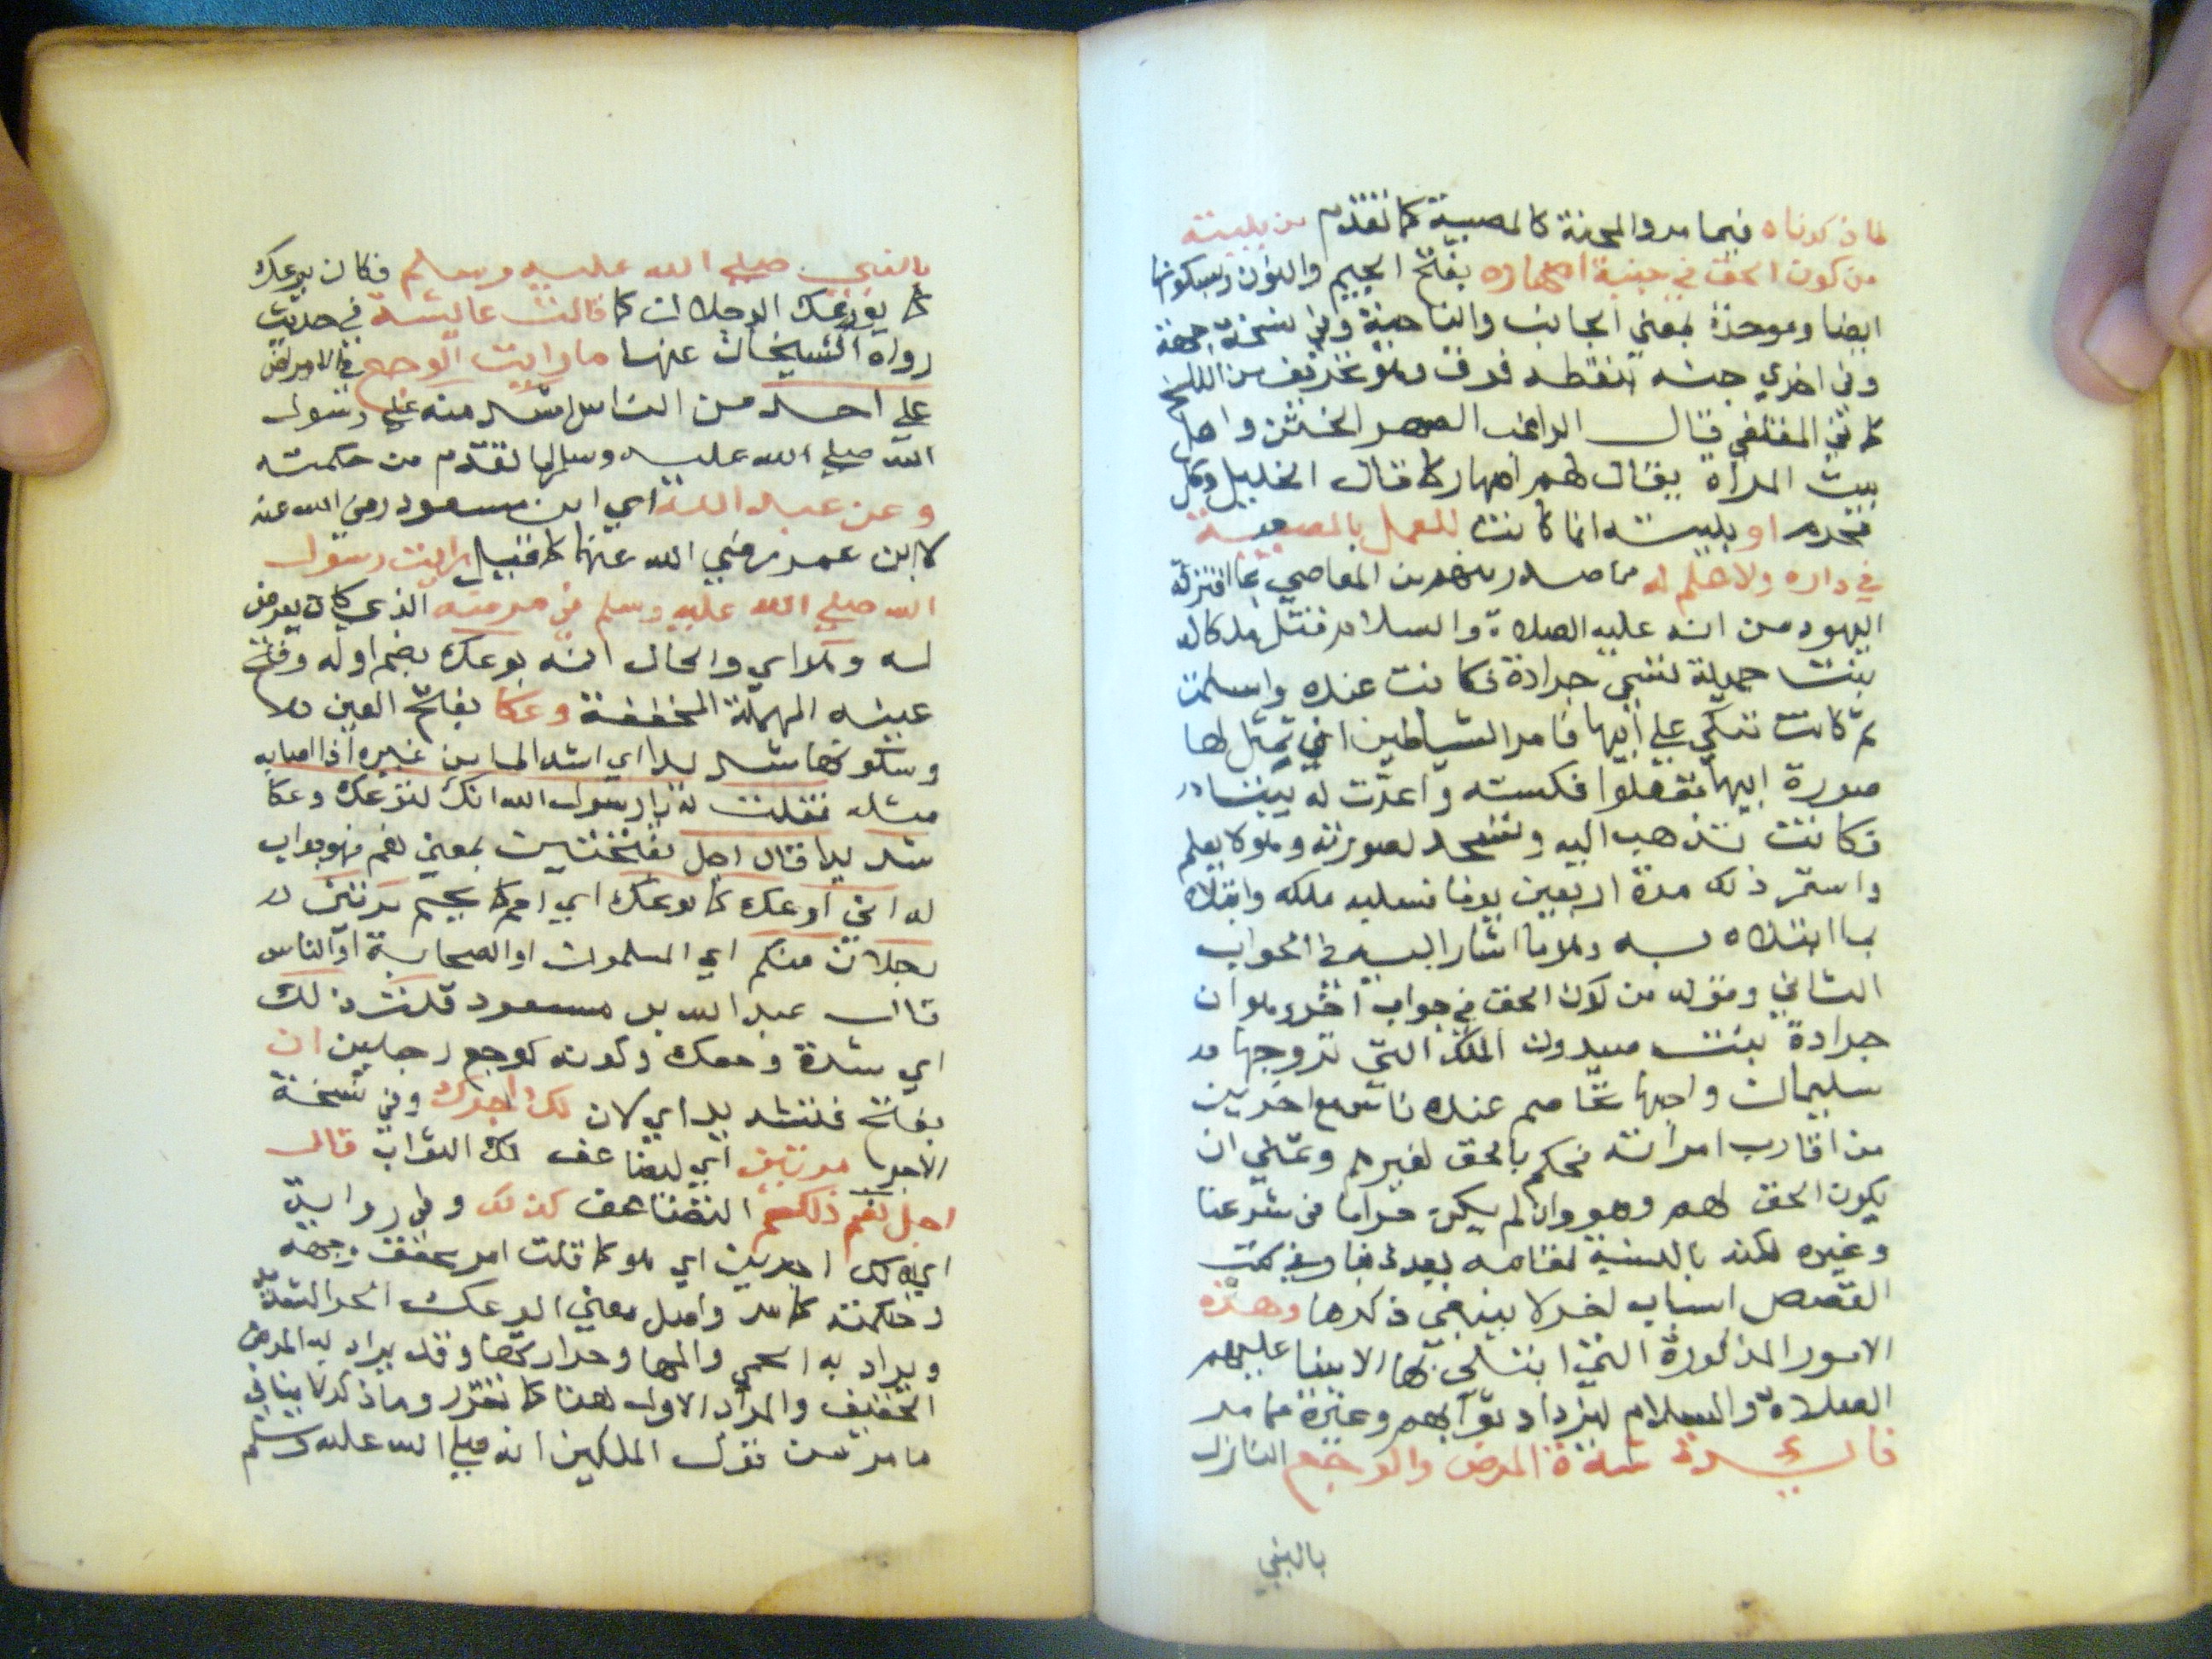 لما ذكرناه فيما مر والمحنة كالمصيبة كما تقدم من بليته
من كون الحق في جنبة اصهاره بفتح الجيم والنون وسكونها
ايضا وموحدة بمعنى الجانب والناحية وفي نسخة جهة
وفي اخري جنته بنقطه فوق وهو تحريف من النسخ
كما في المقتفى قال الراغب الصهر الختن واهل
بيت المرأة يقال لهم اصهار كما قال الخليل وكل
محرم او بليته انما كانت للعمل بالمعصية
في داره ولا علم له مما صدر منهم من المعاصي مما افترته
اليهود من انه عليه الصلاة والسلام قتل ملكا له
بنت جميلة تسمى جرادة فكانت عنده واسلمت
ثم كانت تبكي على ابيها فامر الشياطين ان تمثل لها
صورة ابيها ففعلوا فكسته واعدت له بيتا
فكانت تذهب اليه وتسجد لصورته وهو لا يعلم
واستمر ذلك مدة اربعين يوما فسلبه ملكه وابتلاه
بما ابتلاه به وهو ما اشار اليه في الجواب
الثاني وقوله من كون الحق في جواب اخر وهو ان
جرادة بنت صيدون الملك التي تزوجها
سليمان واحبها تخاصم عنده ناس مع اخرين
من اقارب امراته فحكم بالحق لغيرهم وتمنى ان
يكون الحق لهم وهو وان لم يكن حراما في شرعنا
وغيره لكنه بالنسبة لمقامه يعد ذنبا وفي كتب
القصص اسباب اخر لا ينبغي ذكرها وهذه
الامور المذكورة التي ابتلى بها الانبياء عليهم
الصلاة والسلام ليزداد ثوابهم وغيره مما مر
فائدة شدة المرض والوجع النازل
بالنبي
بالنبي صلى الله عليه وسلم فكان يوعك
كما يوعك الرجلان كما قالت عايشة في حديث
رواه الشيخان عنها ما رايت الوجع في الامراض
على احد من الناس اشد منه على رسول
الله صلى الله عليه وسلم لما تقدم من حكمته
وعن عبد الله اي ابن مسعود رضي الله عنه
لا ابن عمر رضي الله عنهما كما قيل رايت رسول
الله صلى الله عليه وسلم في مرضه الذي كان يعرض
له وهو اي والحال انه يوعك بضم اوله وفتح
عينه المهملة المخففة وعكا بفتح العين
وسكونها شديدا اي اشد الما من غيره اذا اصابه
مثله فقلت له يا رسول الله انك لتوعك وعكا
شديدا قال اجل بفتحتين بمعنى نعم فهو جواب
له اني اوعك كما يوعك اي احم كما يحم
رجلان منكم اي المسلمون او الصحابة او الناس
قال عبد الله بن مسعود قلت ذلك
اي شدة وجعك وكونه كوجع رجلين ان
بفتح فتشديد اي لان لك اجرك وفي نسخة
الاجر مرتين اي يضاعف لك الثواب قال
اجل نعم ذلك التضاعف كذلك وفي رواية
اي لك اجرين اي هو كما قلت امر محقق وجهه
وحكمته كما مر واصل معنى الوعك الحر الشديد
ويراد به الحمى والمها وحرارتها وقد يراد به المرض
الخفيف والمراد الاول هنا كما تقرر وما ذكر لا ينافي
ما مر من قول الملكين انه صلى الله عليه وسلم